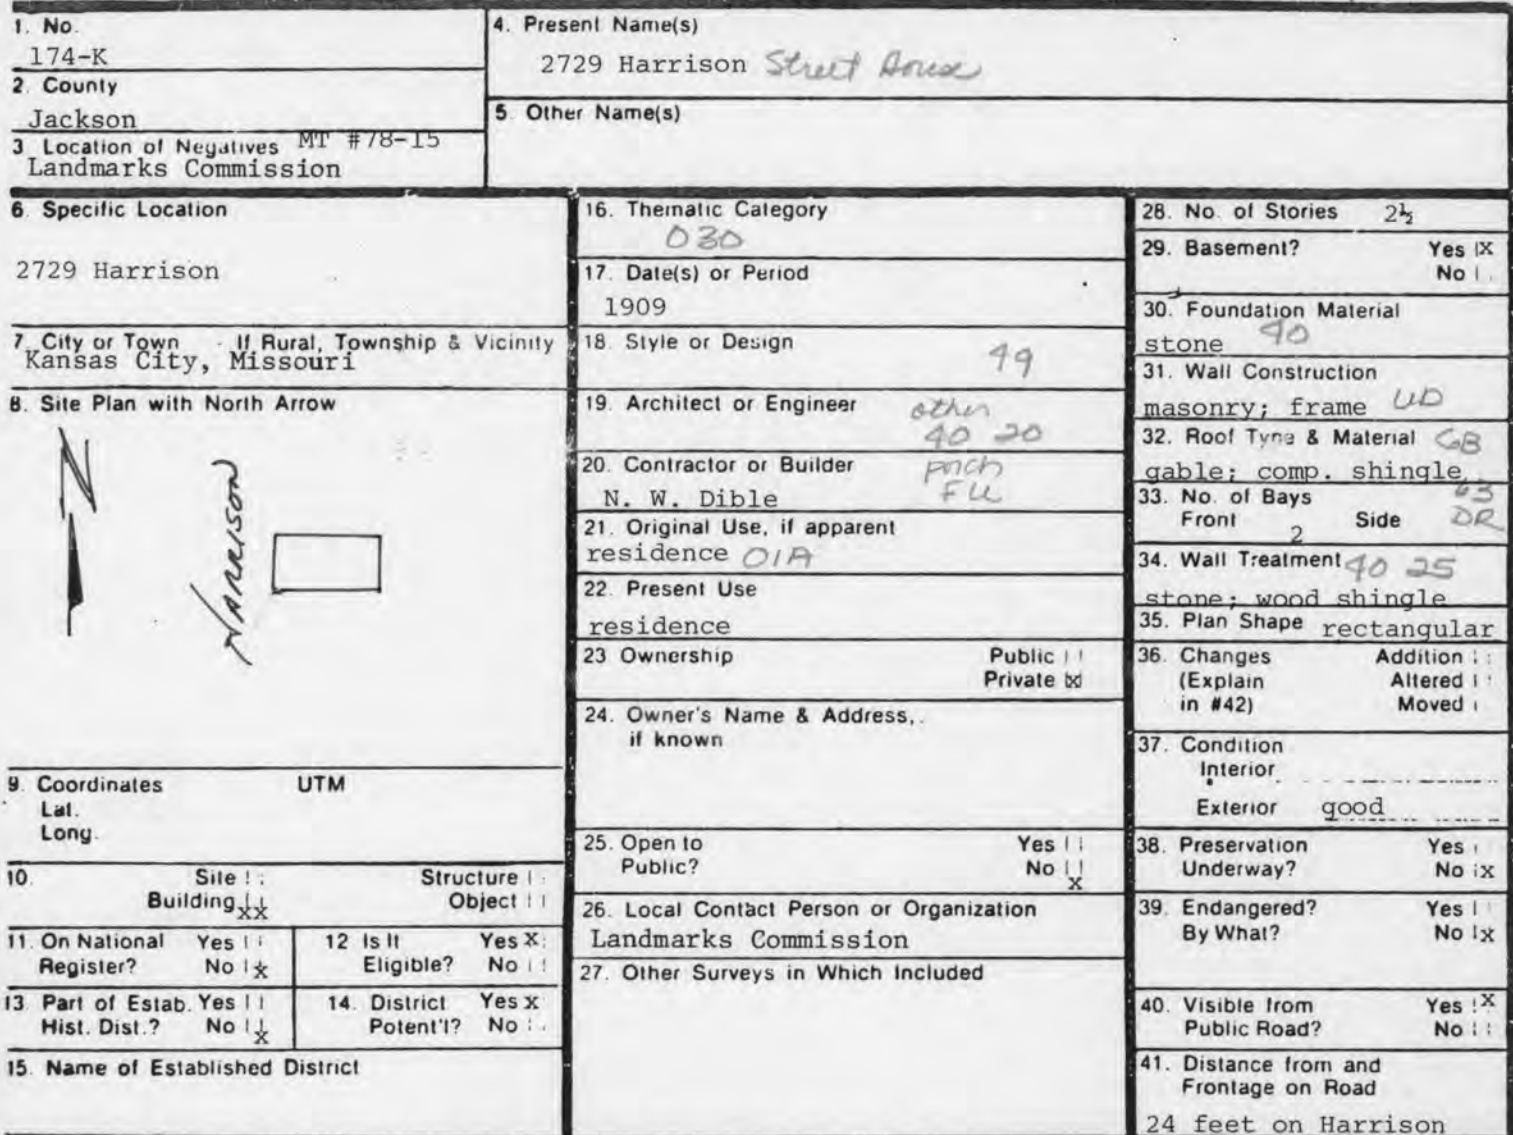 1. No.
174-K
2. County
Jackson
3. Location of Negatives MT #78-15
Landmarks Commission
4. Present Name(s)
2729 Harrison Street House
5. Other Name(s)
6. Specific Location
2729 Harrison
7. City or Town If Rural, Township & Vicinity
Kansas City, Missouri
8. Site Plan with North Arrow
N
HARRISON
9. Coordinates UTM
Lat.
Long.
10. Site Structure
Building XX Object
11. On National Yes
Register? No X
12. Is It Yes X
Eligible? No
13. Part of Estab. Yes
Hist. Dist.? No X
14. District Yes X
Potent'l? No
15. Name of Established District
16. Thematic Category
030
17. Date(s) or Period
1909
18. Style or Design
49
19. Architect or Engineer other
40 20
20. Contractor or Builder porch
N. W. Dible FU
21. Original Use, if apparent
residence 01A
22. Present Use
residence
23. Ownership Public
Private X
24. Owner's Name & Address,
if known
25. Open to Yes
Public? No X
26. Local Contact Person or Organization
Landmarks Commission
27. Other Surveys in Which Included
28. No. of Stories 2½
29. Basement? Yes X
No
30. Foundation Material
stone 40
31. Wall Construction
masonry; frame UD
32. Roof Type & Material GB
gable; comp. shingle
33. No. of Bays 63
Front 2 Side DR
34. Wall Treatment 40 25
stone; wood shingle
35. Plan Shape rectangular
36. Changes Addition
(Explain Altered
in #42) Moved
37. Condition
Interior
Exterior good
38. Preservation Yes
Underway? No X
39. Endangered? Yes
By What? No X
40. Visible from Yes X
Public Road? No
41. Distance from and
Frontage on Road
24 feet on Harrison